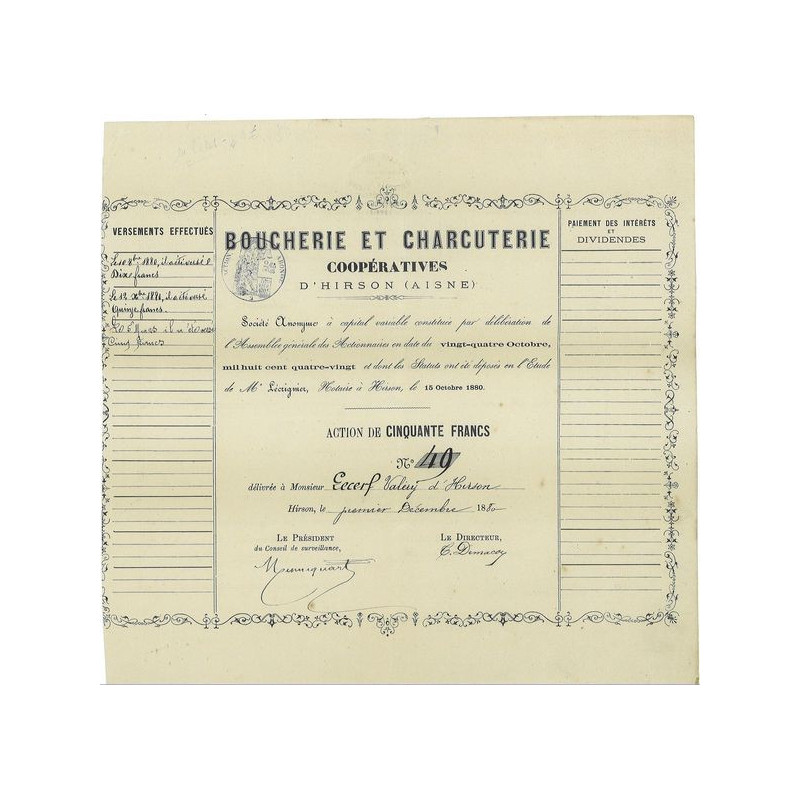 VERSEMENTS EFFECTUÉS
Dix francs
Quinze francs.
Cinq francs
BOUCHERIE ET CHARCUTERIE
COOPÉRATIVES
D'HIRSON (AISNE)
Société Anonyme à capital variable constituée par délibération de
l'Assemblée générale des Actionnaires en date du vingt-quatre Octobre,
mil huit cent quatre-vingt et dont les Statuts ont été déposés en l'Etude
de Mᵉ Lécrignier, Notaire à Hirson, le 15 Octobre 1880.
ACTION DE CINQUANTE FRANCS
N° 49
délivrée à Monsieur Lecerf Valéry d'Hirson
Hirson, le premier Décembre 1880
LE PRÉSIDENT
du Conseil de surveillance,
LE DIRECTEUR,
PAIEMENT DES INTÉRÊTS
ET
DIVIDENDES